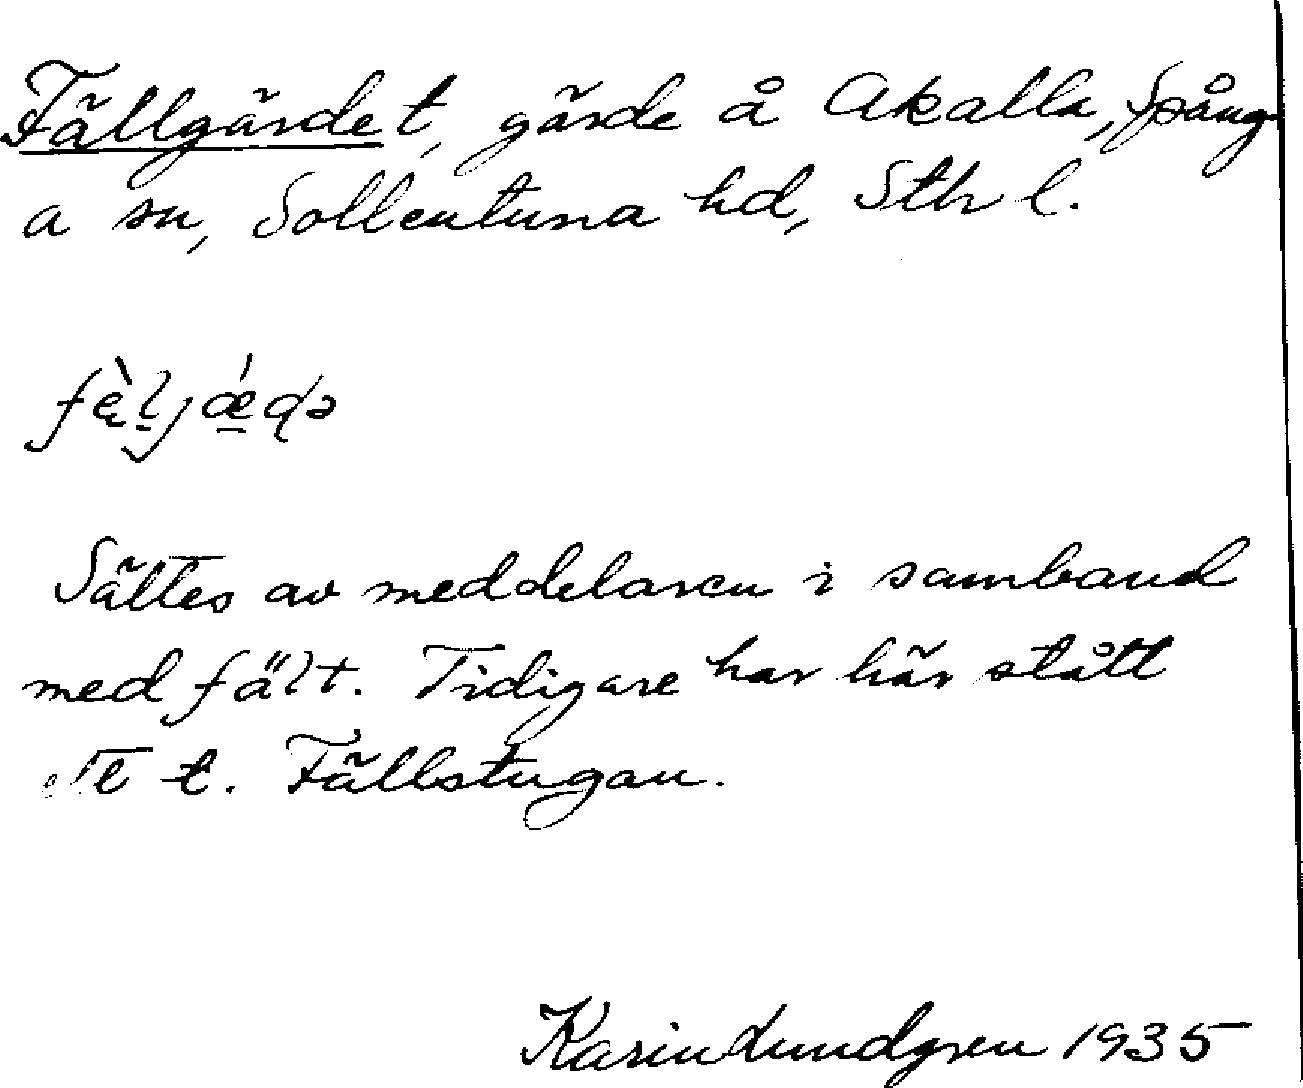 Fällgärdet, gärde å Akalla, Spång-
a sn, Sollentuna hd, Sth l.
Sättes av meddelaren i samband
med fält. Tidigare har här stått
ett t. Fällstugan.
Karin Lundgren 1935